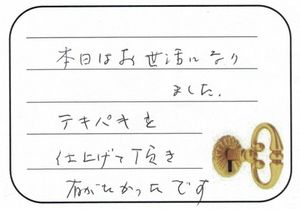 本日はお世話になり
ました.
テキパキと
仕上げて頂き
有がたかったです